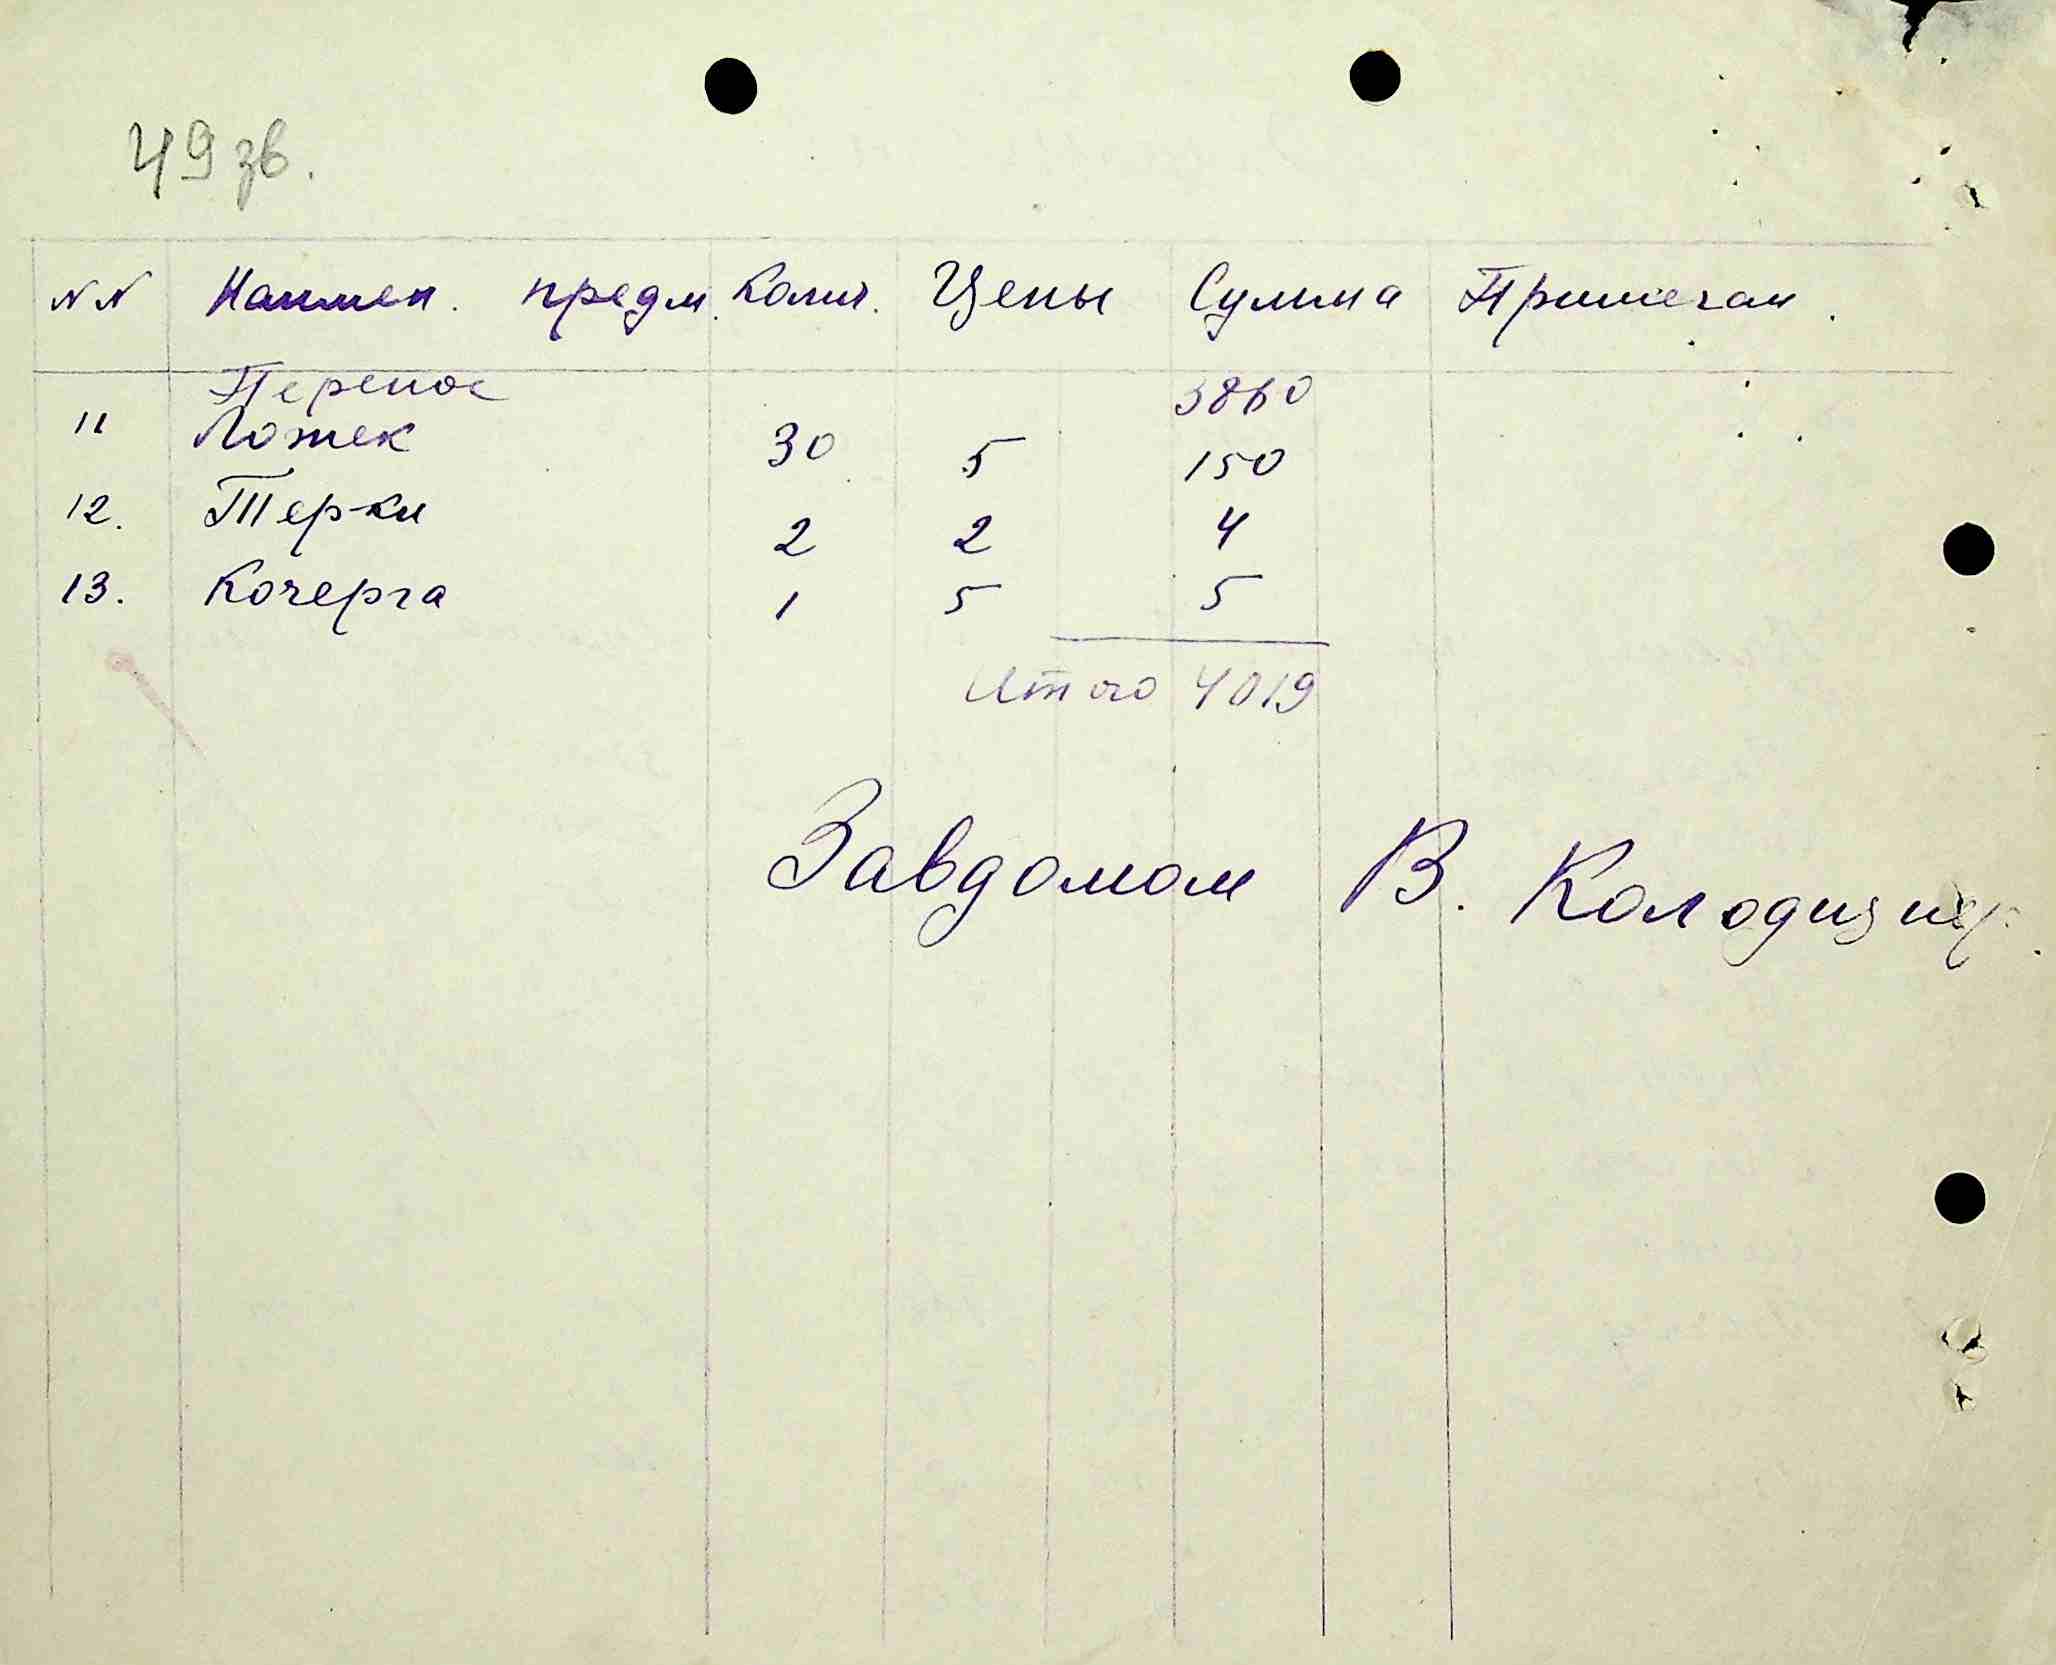 49 зв.
NN Наимен. предм. Колич. Цены Сумма Примечан.
Перенос 3860
11 Ложек 30 5 150
12. Терки 2 2 4
13. Кочерга 1 5 5
Итого 4019
Завдомом В. Колодизнер.